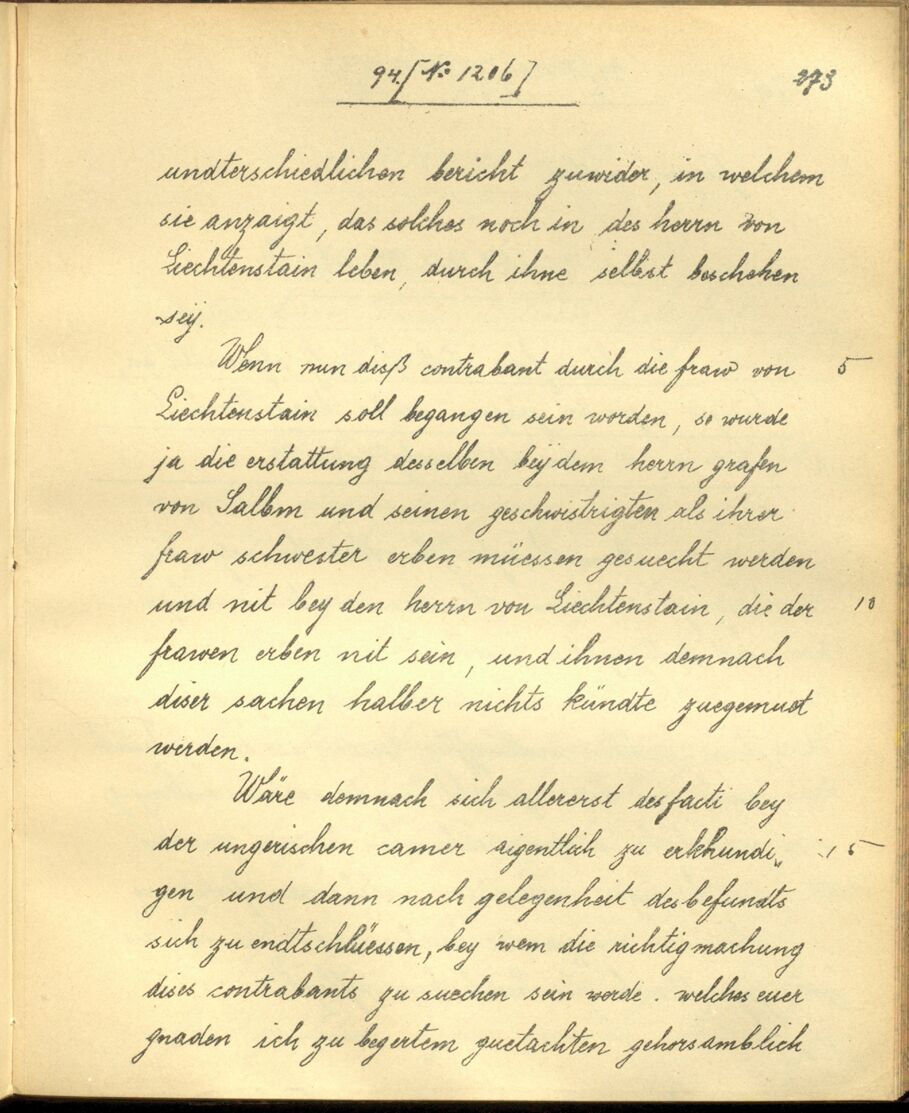 94.[No 1206]
273
undterschiedlichen bericht zuwider, in welchem
sie anzaigt, das solches noch in des herrn von
Liechtenstain leben, durch ihne selbst beschehen
seÿ.
Wenn nun diß contrabant durch die fraw von 5
Liechtenstain soll begangen sein worden, so wurde
ja die erstattung desselben beÿ dem herrn grafen
von Salbm und seinen geschwistrigten als ihrer
fraw schwester erben müessen gesuecht werden
und nit bey den herrn von Liechtenstain, die der 10
frawen erben nit sein, und ihnen demnach
diser sachen halber nichts kündte zuegemuet
werden.
Wäre demnach sich allererst des facti bey
der ungerischen camer aigentlich zu erkhundi„ 15
gen und dann nach gelegenheit des befundts
sich zu endtschlüessen, bey wem die richtigmachung
dises contrabants zu suechen sein werde. welches euer
gnaden ich zu begertem guetachten gehorsamblich